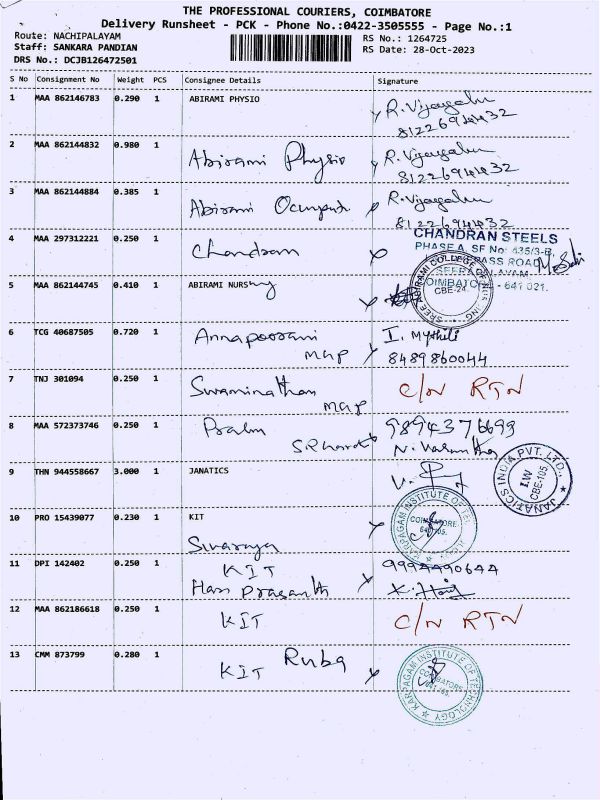 THE PROFESSIONAL COURIERS, COIMBATORE
Delivery Runsheet - PCK - Phone No.:0422-3505555 - Page No.:1
Route: NACHIPALAYAM RS No.: 1264725
Staff: SANKARA PANDIAN RS Date: 28-Oct-2023
DRS No.: DCJB126472501
S No Consignment No Weight PCS Consignee Details Signature
1 MAA 862146783 0.290 1 ABIRAMI PHYSIO
8122694432
2 MAA 862144832 0.980 1 Abirami Physio
8122694432
3 MAA 862144884 0.385 1 Abirami
8122694432
4 MAA 297312221 0.250 1 Chandran CHANDRAN STEELS
PHASE A, SF No: 435/3-B,
PASS ROAD
COIMBATORE - 641 021.
5 MAA 862144745 0.410 1 ABIRAMI NURSNY
CBE-24
6 TCG 40687505 0.720 1 Annapoorani I. Mythili
MGP 8489860044
7 TNJ 301094 0.250 1 Swaminathan C/N RTN
MGP
8 MAA 572373746 0.250 1 9894376699
9 THN 944558667 3.000 1 JANATICS
JANATICS INDIA PVT. LTD.,
I.W
CBE-105.
10 PRO 15439077 0.230 1 KIT
KARPAGAM INSTITUTE OF TECHNOLOGY
COIMBATORE
641 105.
11 DPI 142402 0.250 1 KIT 9994490644
Hari Prasanth
12 MAA 862186618 0.250 1 KIT C/N RTN
13 CMM 873799 0.280 1 KIT Ruba
KARPAGAM INSTITUTE OF TECHNOLOGY